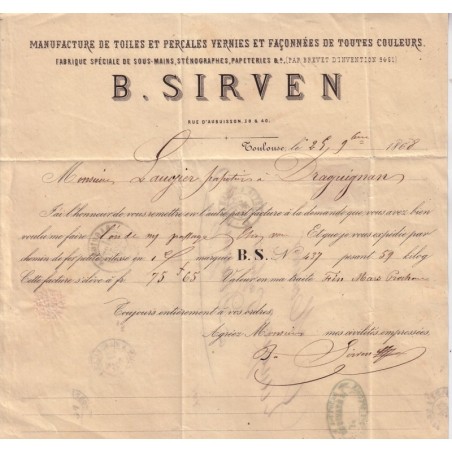 MANUFACTURE DE TOILES ET PERCALES VERNIES ET FAÇONNÉES DE TOUTES COULEURS.
FABRIQUE SPÉCIALE DE SOUS-MAINS, STÉNOGRAPHES, PAPETERIES &ª, (PAR BREVET D'INVENTION SGSG)
B. SIRVEN
RUE D'AUBUISSON, 38 & 40.
Toulouse, le 25 9bre 1868
Monsieur Laugier papetier à Draguignan
J'ai l'honneur de vous remettre ci-contre facture à la demande que vous avez bien
voulu me faire lors de mon passage chez vous Et que je vous expédie par
chemin de fer petite vitesse en 1 marquée B.S. N° 437 pesant 59 kilog
Cette facture s'élève à fr 75 F 65 Valeur en ma traite Fin Mars Prochain
Toujours entièrement à vos ordres,
Agréez Monsieur mes civilités empressées
B. Sirven